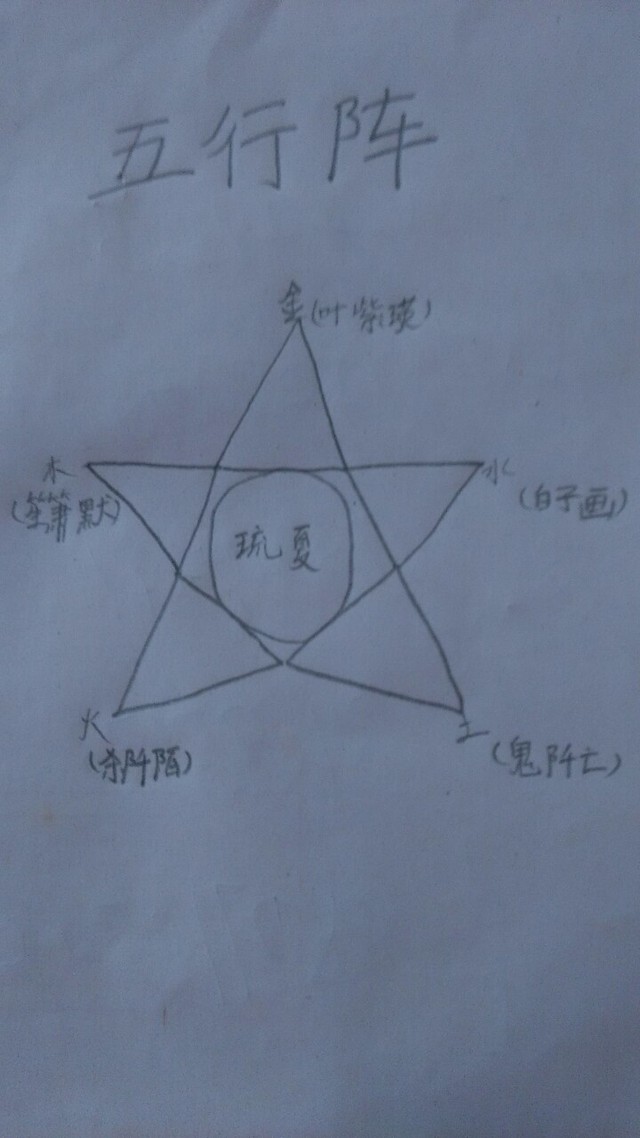 五行阵
金(叶紫瑛)
木
(笙箫默)
水
(白子画)
琉夏
火
(杀阡陌)
土
(鬼阡亡)